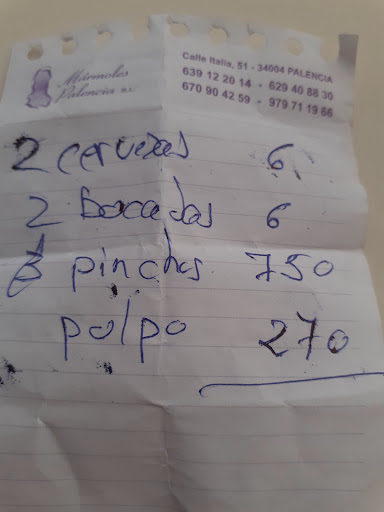 Mármoles
Palencia S.L.
Calle Italia, 51 - 34004 PALENCIA
639 12 20 14 - 629 40 88 30
670 90 42 59 - 979 71 19 66
2 cervezas 6
2 bocados 6
pinchos 750
polpo 270